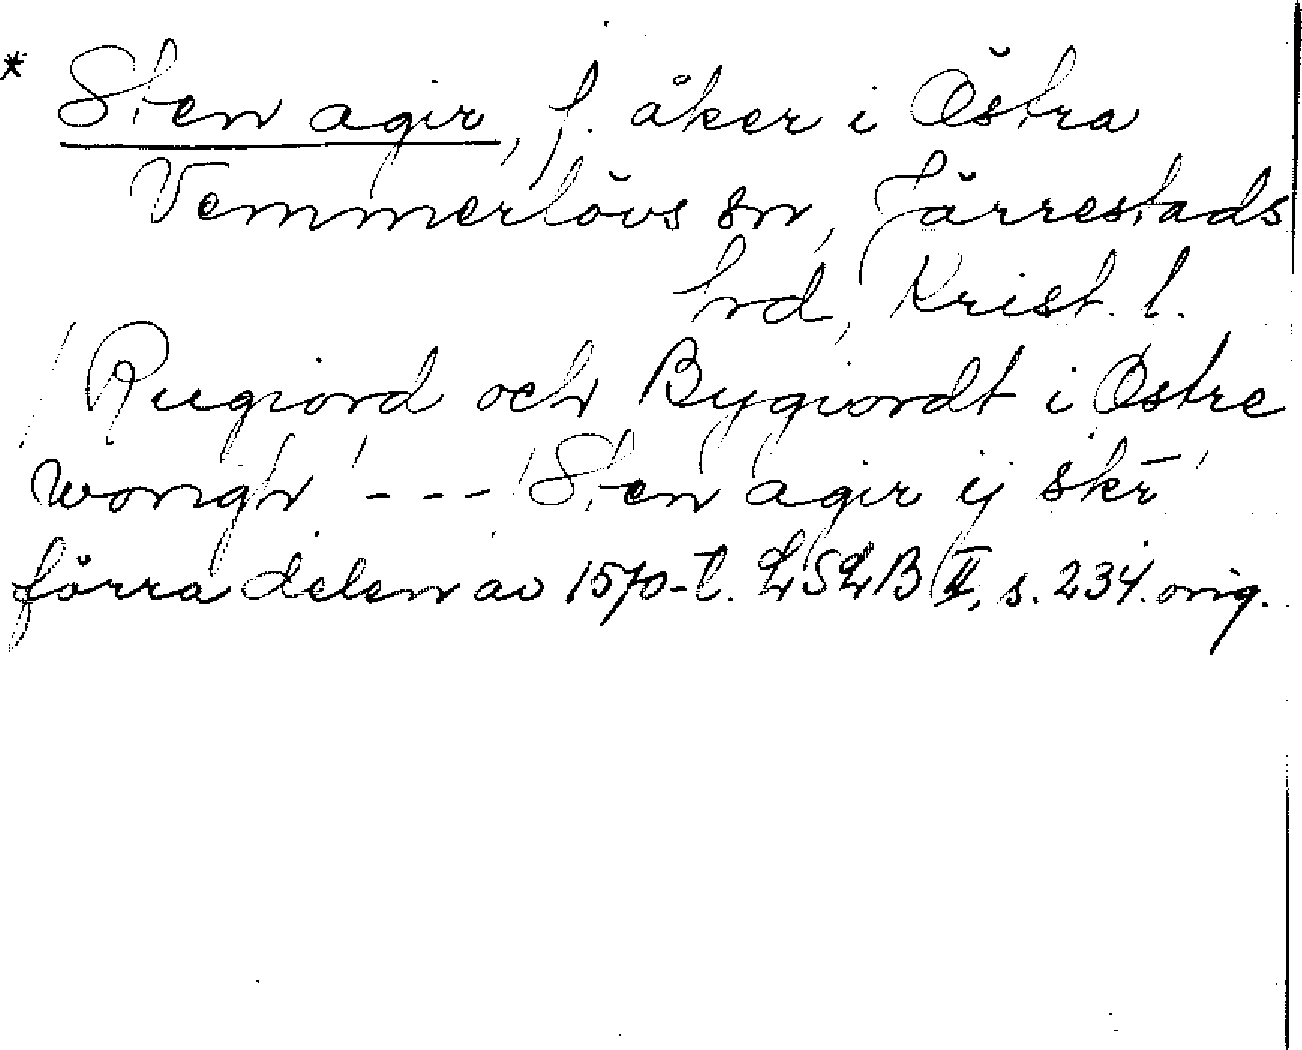 * Sten agir, f. åker i Östra
Vemmerlövs sn, Järrestads
hd, Krist. l.
'Rugiord och Bygiordt i Østre
wongh' - - - 'Sten agir ij skr̄'
förra delen av 1570-t. LSLB II, s. 234. orig.